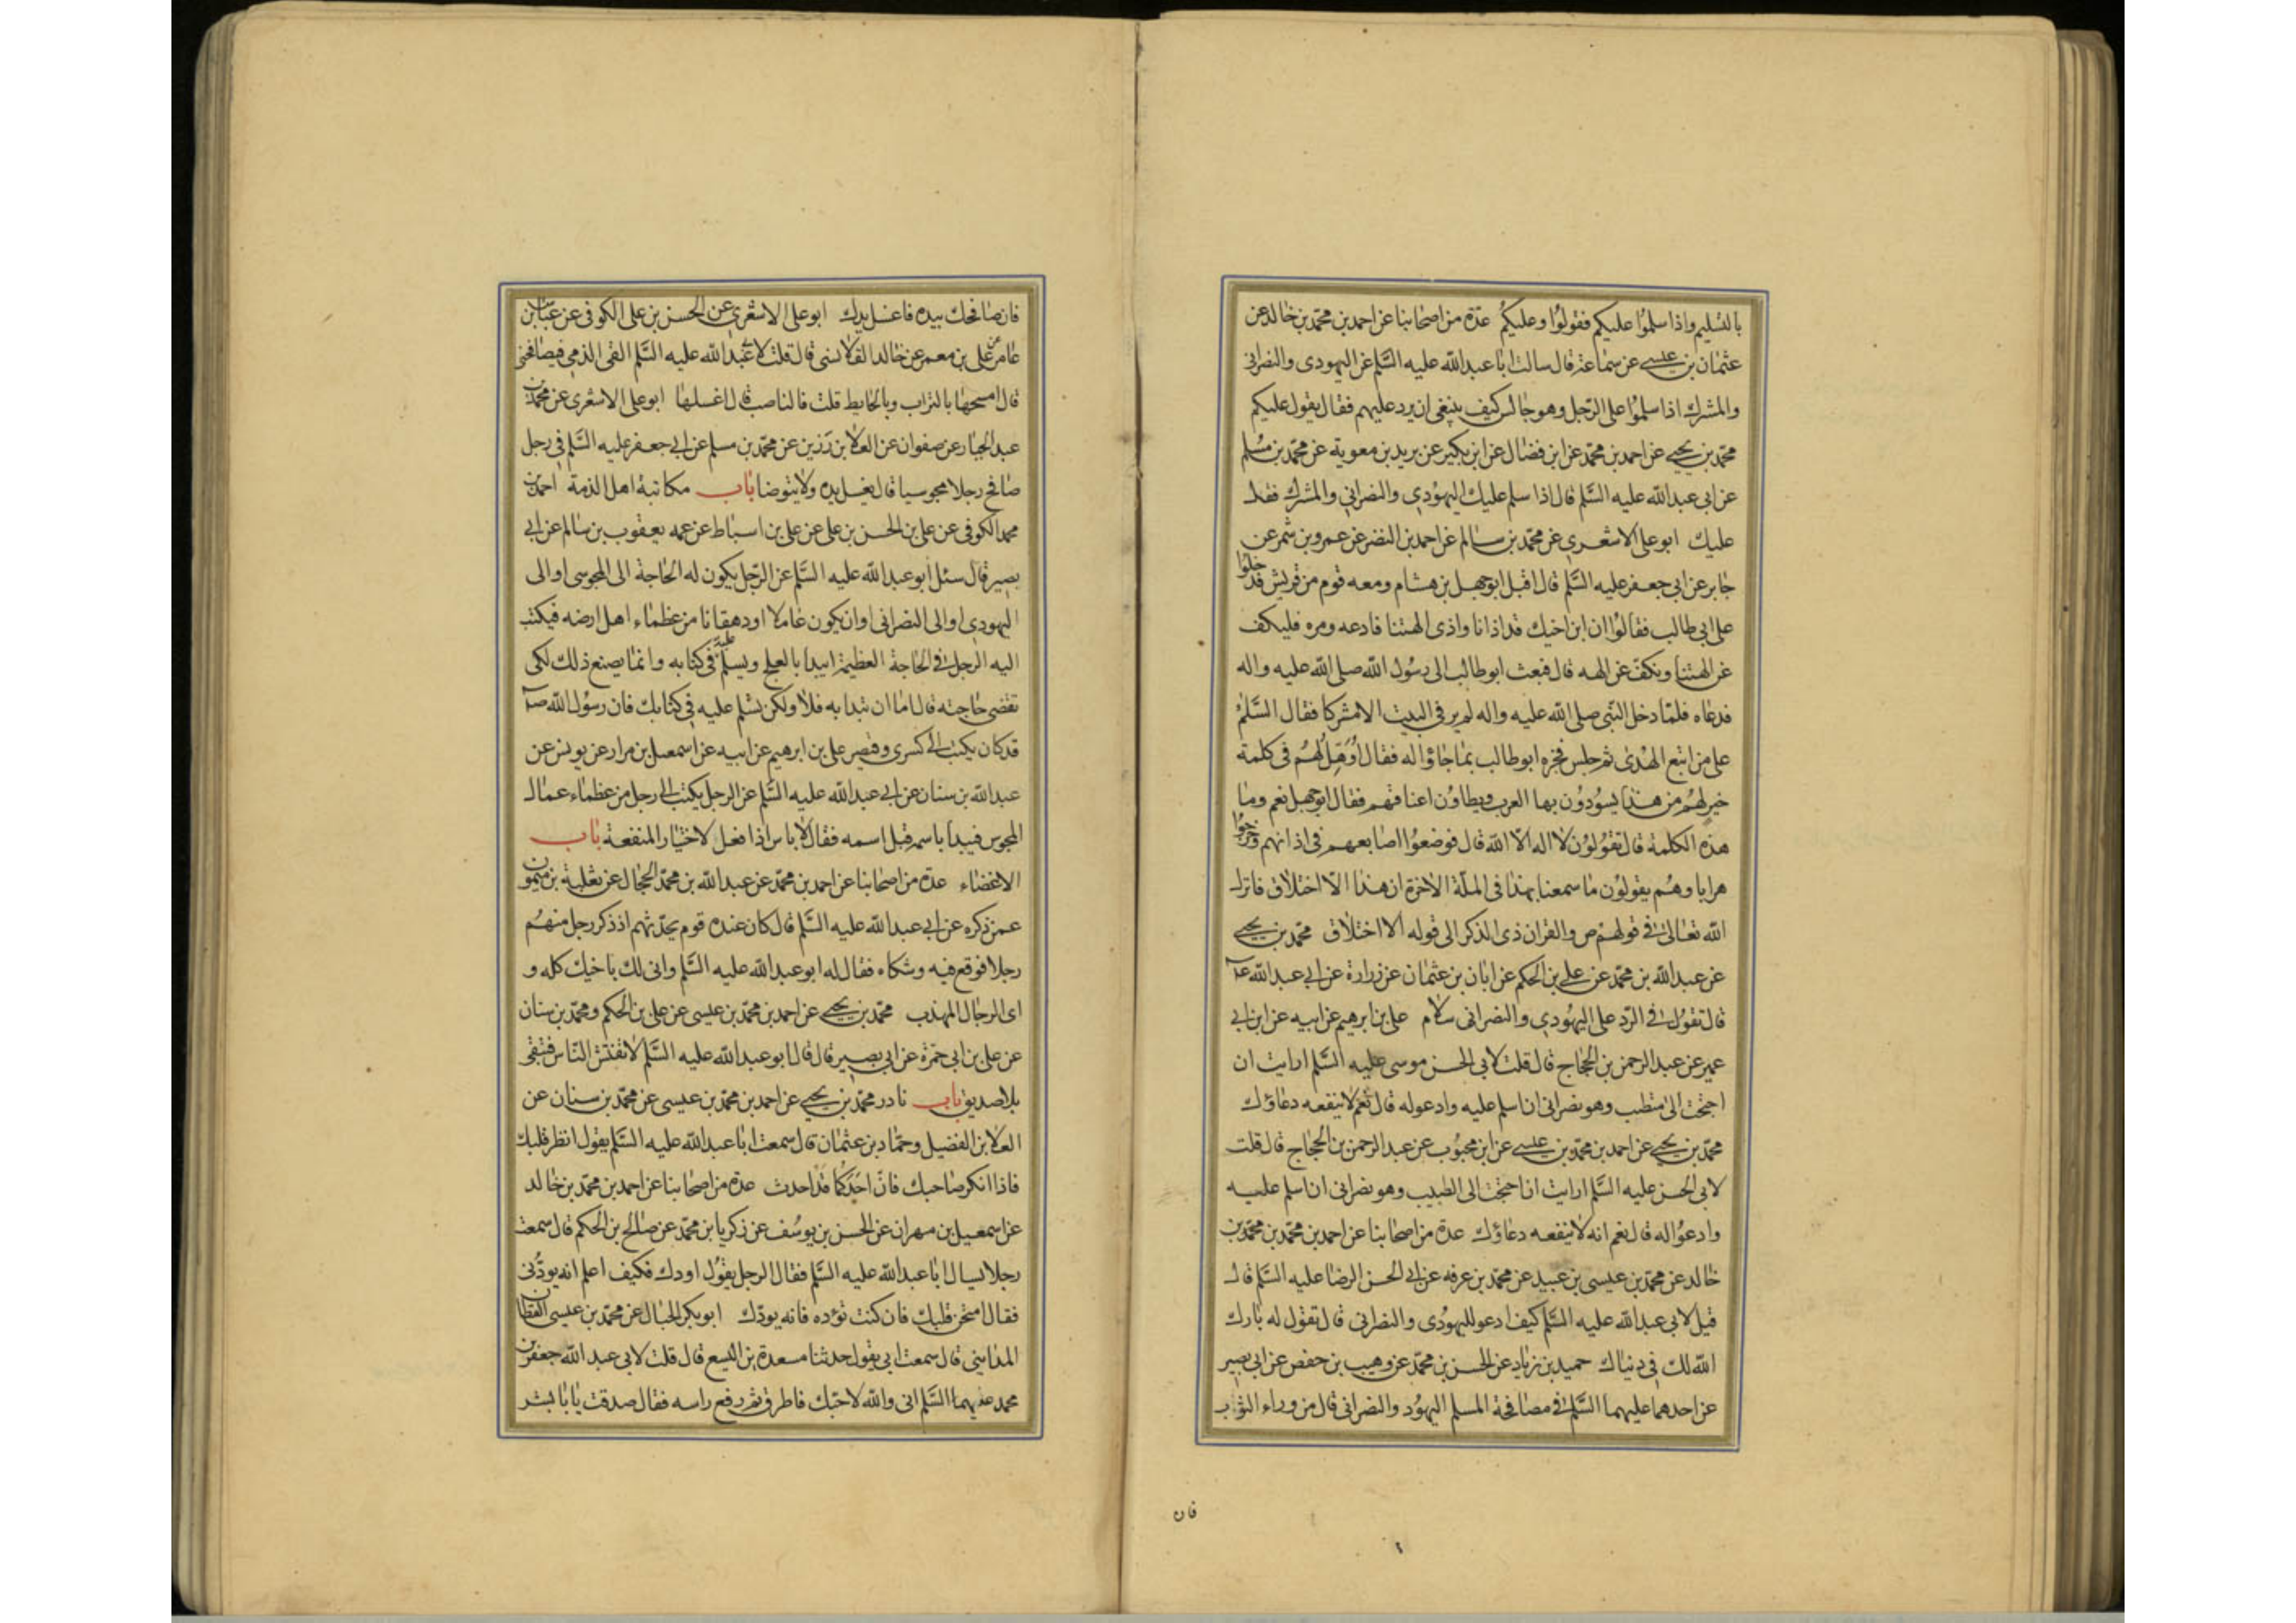 بالتسليم واذا سلموا عليكم فقولوا وعليكم عدة من اصحابنا عن احمد بن محمد بن خالد عن
عثمان بن عيسى عن سماعة قال سالت ابا عبد الله عليه السلم عن اليهودى والنصرانى
والمشرك اذا سلموا على الرجل وهو جالس كيف ينبغى ان يرد عليهم فقال يقول عليكم
محمد بن يحيى عن احمد بن محمد عن ابن فضال عن ابن بكير عن بريد بن معوية عن محمد بن مسلم
عن ابى عبد الله عليه السلم قال اذا سلم عليك اليهودى والنصرانى والمشرك فقل
عليك ابو على الاشعرى عن محمد بن سالم عن احمد بن النضر عن عمرو بن شمر عن
جابر عن ابى جعفر عليه السلم قال اقبل ابو جهل بن هشام ومعه قوم من قريش فدخلوا
على ابى طالب فقالوا ان ابن اخيك قد اذانا واذى الهتنا فادعه ومره فليكف
عن الهتنا ونكف عن الهه قال فبعث ابو طالب الى رسول الله صلى الله عليه واله
فدعاه فلما دخل النبى صلى الله عليه واله لم ير فى البيت الا مشركا فقال السلم
على من اتبع الهدى ثم جلس فخبره ابو طالب بما جاؤا له فقال او هل لهم فى كلمة
خير لهم من هذا يسودون بها العرب ويطاون اعناقهم فقال ابو جهل نعم وما
هذه الكلمة قال تقولون لا اله الا الله قال فوضعوا اصابعهم فى اذانهم وخرجوا
هرابا وهم يقولون ما سمعنا بهذا فى الملة الاخرة ان هذا الا اختلاق فانزل
الله تعالى فى قولهم ص والقران ذى الذكر الى قوله الا اختلاق محمد بن يحيى
عن عبد الله بن محمد عن على بن الحكم عن ابان بن عثمان عن زرارة عن ابى عبد الله ع
قال تقول فى الرد على اليهودى والنصرانى سلام على بن ابرهيم عن ابيه عن ابن ابى
عمير عن عبد الرحمن بن الحجاج قال قلت لابى الحسن موسى عليه السلم ارايت ان
احتجت الى متطبب وهو نصرانى ان اسلم عليه وادعو له قال نعم لا ينفعه دعاؤك
محمد بن يحيى عن احمد بن محمد بن عيسى عن ابن محبوب عن عبد الرحمن بن الحجاج قال قلت
لابى الحسن عليه السلم ارايت ان احتجت الى الطبيب وهو نصرانى ان اسلم عليه
وادعو له قال نعم انه لا ينفعه دعاؤك عدة من اصحابنا عن احمد بن محمد بن محمد بن
خالد عن محمد بن عيسى بن عبيد عن محمد بن عرفه عن ابى الحسن الرضا عليه السلم قال
قيل لابى عبد الله عليه السلم كيف ادعو لليهودى والنصرانى قال تقول له بارك
الله لك فى دنياك حميد بن زياد عن الحسن بن محمد عن وهيب بن حفص عن ابى بصير
عن احدهما عليهما السلم فى مصافحة المسلم اليهود والنصرانى قال من وراء الثواب
فان
فان صافحك بيده فاغسل يدك ابو على الاشعرى عن الحسن بن على الكوفى عن عباس بن
عامر عن على بن معمر عن خالد القلانسى قال قلت لابى عبد الله عليه السلم القى الذمى فيصافحنى
قال امسحها بالتراب وبالحايط قلت فالناصب قال اغسلها ابو على الاشعرى عن محمد بن
عبد الجبار عن صفوان عن العلا بن رزين عن محمد بن مسلم عن ابى جعفر عليه السلم فى رجل
صافح رجلا مجوسيا قال يغسل يده ولا يتوضا باب مكاتبة اهل الذمة احمد بن
محمد الكوفى عن على بن الحسن بن على عن على بن اسباط عن عمه يعقوب بن سالم عن ابى
بصير قال سئل ابو عبد الله عليه السلم عن الرجل يكون له الحاجة الى المجوسى او الى
اليهودى او الى النصرانى او ان يكون عاملا او دهقانا من عظماء اهل ارضه فيكتب
اليه الرجل فى الحاجة العظيمة ايبدا بالعلج ويسلم عليه فى كتابه وانما يصنع ذلك لكى
تقضى حاجته قال اما ان تبدا به فلا ولكن تسلم عليه فى كتابك فان رسول الله ص
قد كان يكتب الى كسرى وقيصر على بن ابرهيم عن ابيه عن اسمعيل بن مرار عن يونس عن
عبد الله بن سنان عن ابى عبد الله عليه السلم عن الرجل يكتب الى رجل من عظماء عمال
المجوس فيبدا باسمه قبل اسمه فقال لا باس اذا فعل لاختيار المنفعة باب
الاغضاء عدة من اصحابنا عن احمد بن محمد عن عبد الله بن محمد الحجال عن ثعلبة بن ميمون
عمن ذكره عن ابى عبد الله عليه السلم قال كان عنده قوم يحدثهم اذ ذكر رجل منهم
رجلا فوقع فيه وشكاه فقال له ابو عبد الله عليه السلم وانى لك باخيك كله و
اى الرجال المهذب محمد بن يحيى عن احمد بن محمد بن عيسى عن على بن الحكم ومحمد بن سنان
عن على بن ابى حمزة عن ابى بصير قال قال ابو عبد الله عليه السلم لا تفتش الناس فتبقى
بلا صديق باب نادر محمد بن يحيى عن احمد بن محمد بن عيسى عن محمد بن سنان عن
العلا بن الفضيل وحماد بن عثمان قال سمعت ابا عبد الله عليه السلم يقول انظر قلبك
فاذا انكر صاحبك فان احدكما قد احدث عدة من اصحابنا عن احمد بن محمد بن خالد
عن اسمعيل بن مهران عن الحسن بن يوسف عن زكريا بن محمد عن صالح بن الحكم قال سمعت
رجلا يسال ابا عبد الله عليه السلم فقال الرجل يقول اودك فكيف اعلم انه يودنى
فقال امتحن قلبك فان كنت توده فانه يودك ابو بكر الحبال عن محمد بن عيسى القطان
المداينى قال سمعت ابى يقول حدثنا مسعدة بن اليسع قال قلت لابى عبد الله جعفر بن
محمد عليهما السلم انى والله لاحبك فاطرق ثم رفع راسه فقال صدقت يا با بشر